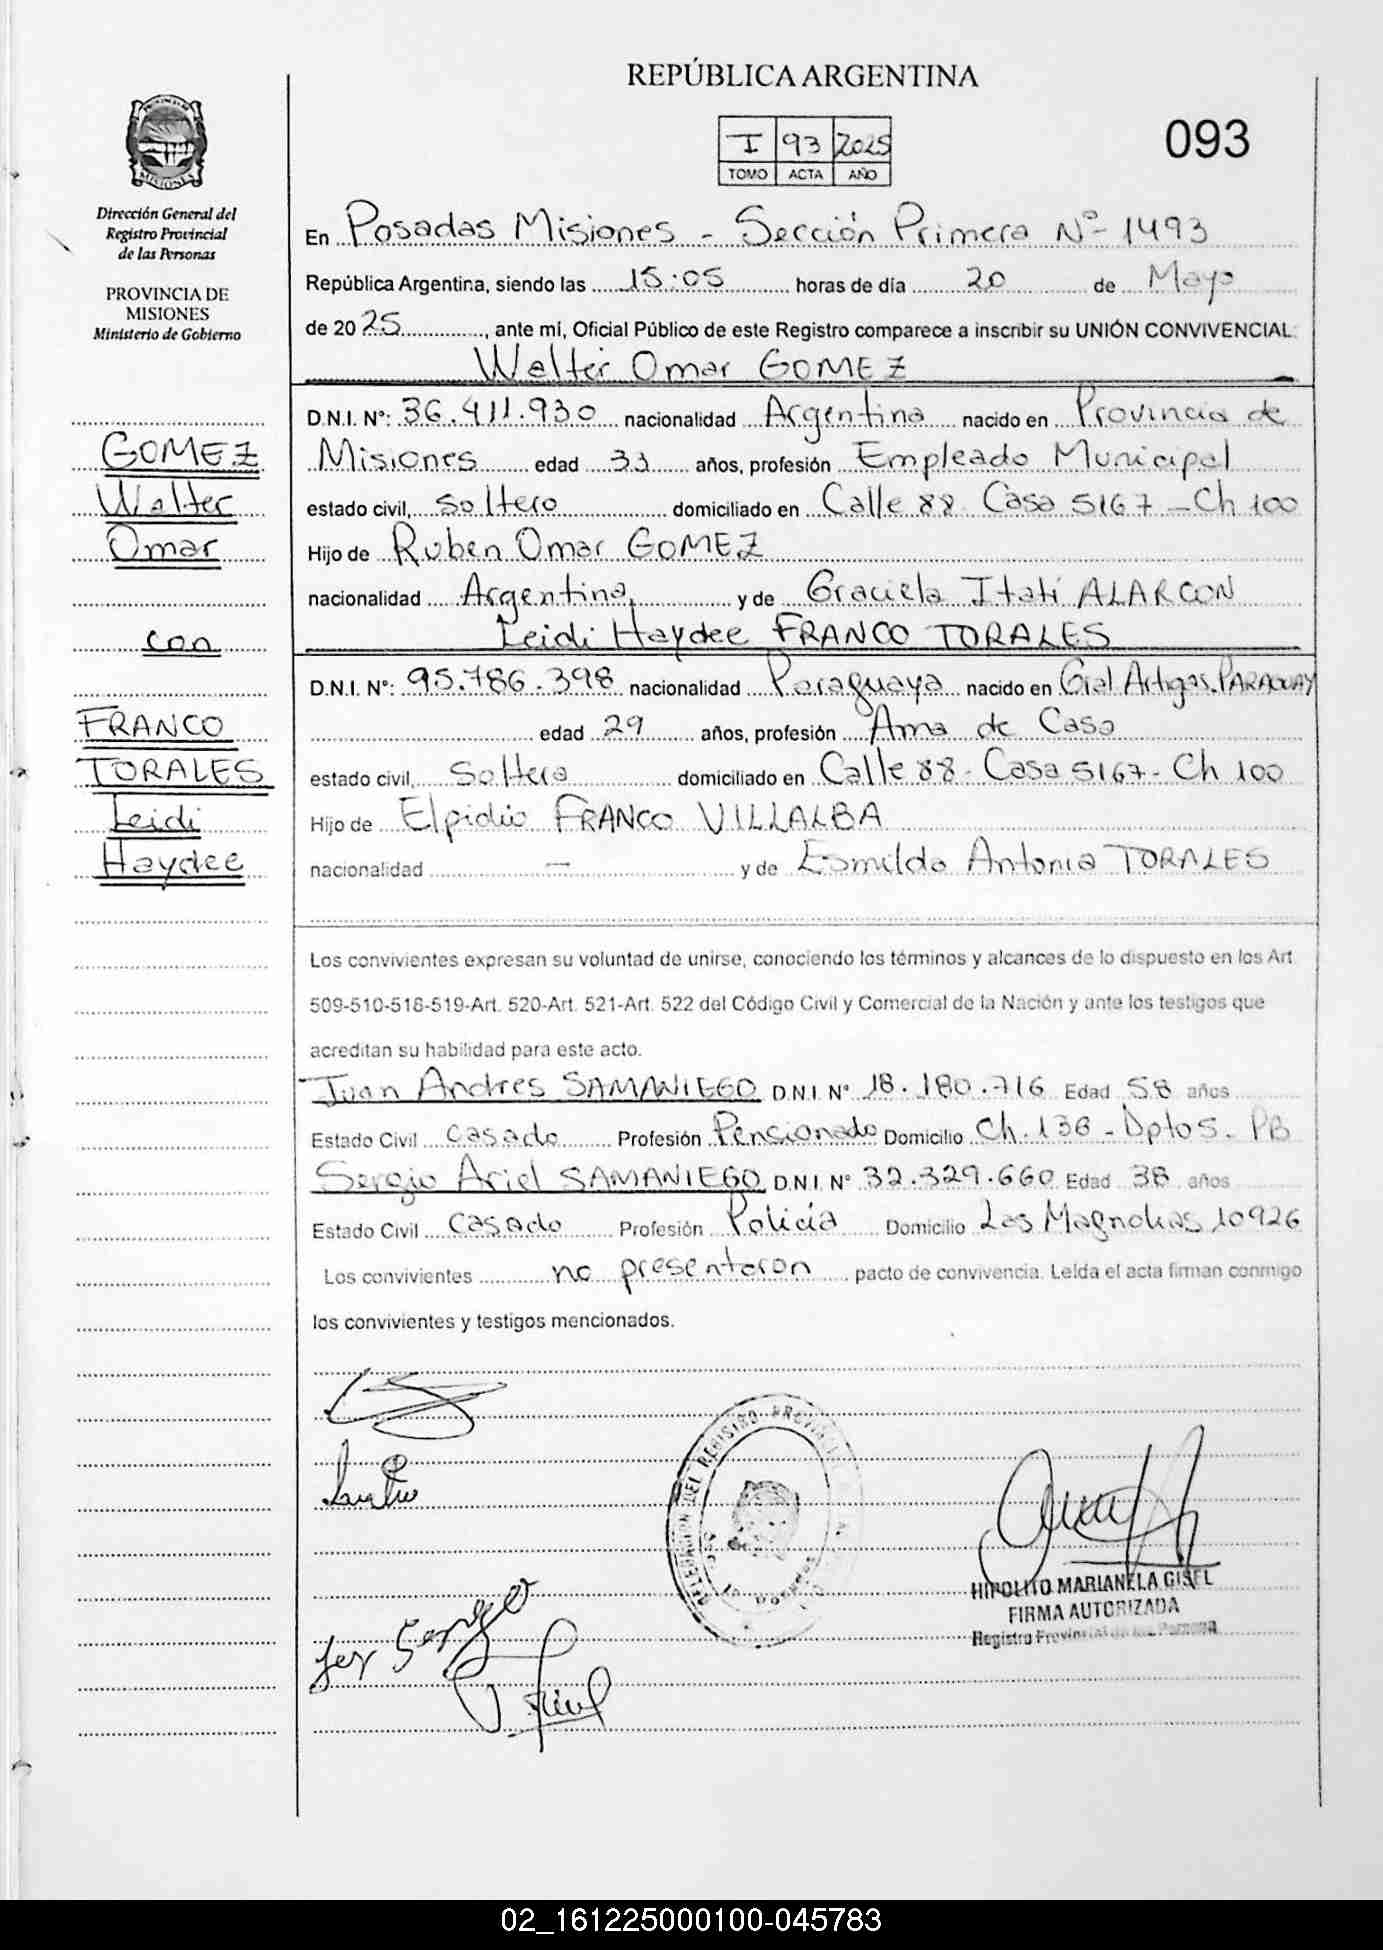 REPÚBLICA ARGENTINA
093
I 93 2025
TOMO ACTA AÑO
Dirección General del
Registro Provincial
de las Personas
PROVINCIA DE
MISIONES
Ministerio de Gobierno
GOMEZ
Walter
Omar
con
FRANCO
TORALES
Leidi
Haydee
En Posadas Misiones - Sección Primera Nº 1493
República Argentina, siendo las 15:05 horas de día 20 de Mayo
de 2025, ante mí, Oficial Público de este Registro comparece a inscribir su UNIÓN CONVIVENCIAL:
Walter Omar GOMEZ
D.N.I. Nº: 36.411.930 nacionalidad Argentina nacido en Provincia de
Misiones edad 33 años, profesión Empleado Municipal
estado civil, soltero domiciliado en Calle 88 Casa 5167 - Ch 100
Hijo de Ruben Omar GOMEZ
nacionalidad Argentina, y de Graciela Itatí ALARCON
Leidi Haydee FRANCO TORALES
D.N.I. Nº: 95.786.398 nacionalidad Paraguaya nacido en Gral Artigas. PARAGUAY
edad 29 años, profesión Ama de Casa
estado civil, Soltera domiciliado en Calle 88 - Casa 5167 - Ch 100
Hijo de Elpidio FRANCO VILLALBA
nacionalidad — y de Esmilda Antonia TORALES
Los convivientes expresan su voluntad de unirse, conociendo los términos y alcances de lo dispuesto en los Art.
509-510-518-519-Art. 520-Art. 521-Art. 522 del Código Civil y Comercial de la Nación y ante los testigos que
acreditan su habilidad para este acto.
Juan Andres SAMANIEGO D.N.I. Nº 18.180.716 Edad 58 años
Estado Civil Casado Profesión Pensionado Domicilio Ch. 136 - Dpto 5 - PB
Sergio Ariel SAMANIEGO D.N.I. Nº 32.329.660 Edad 38 años
Estado Civil Casado Profesión Policía Domicilio Las Magnolias 10926
Los convivientes no presentaron pacto de convivencia. Leída el acta firman conmigo
los convivientes y testigos mencionados.
DELEGACION DEL REGISTRO PROVINCIAL
HIPOLITO MARIANELA GISEL
FIRMA AUTORIZADA
Registro Provincial de las Personas
02_161225000100-045783